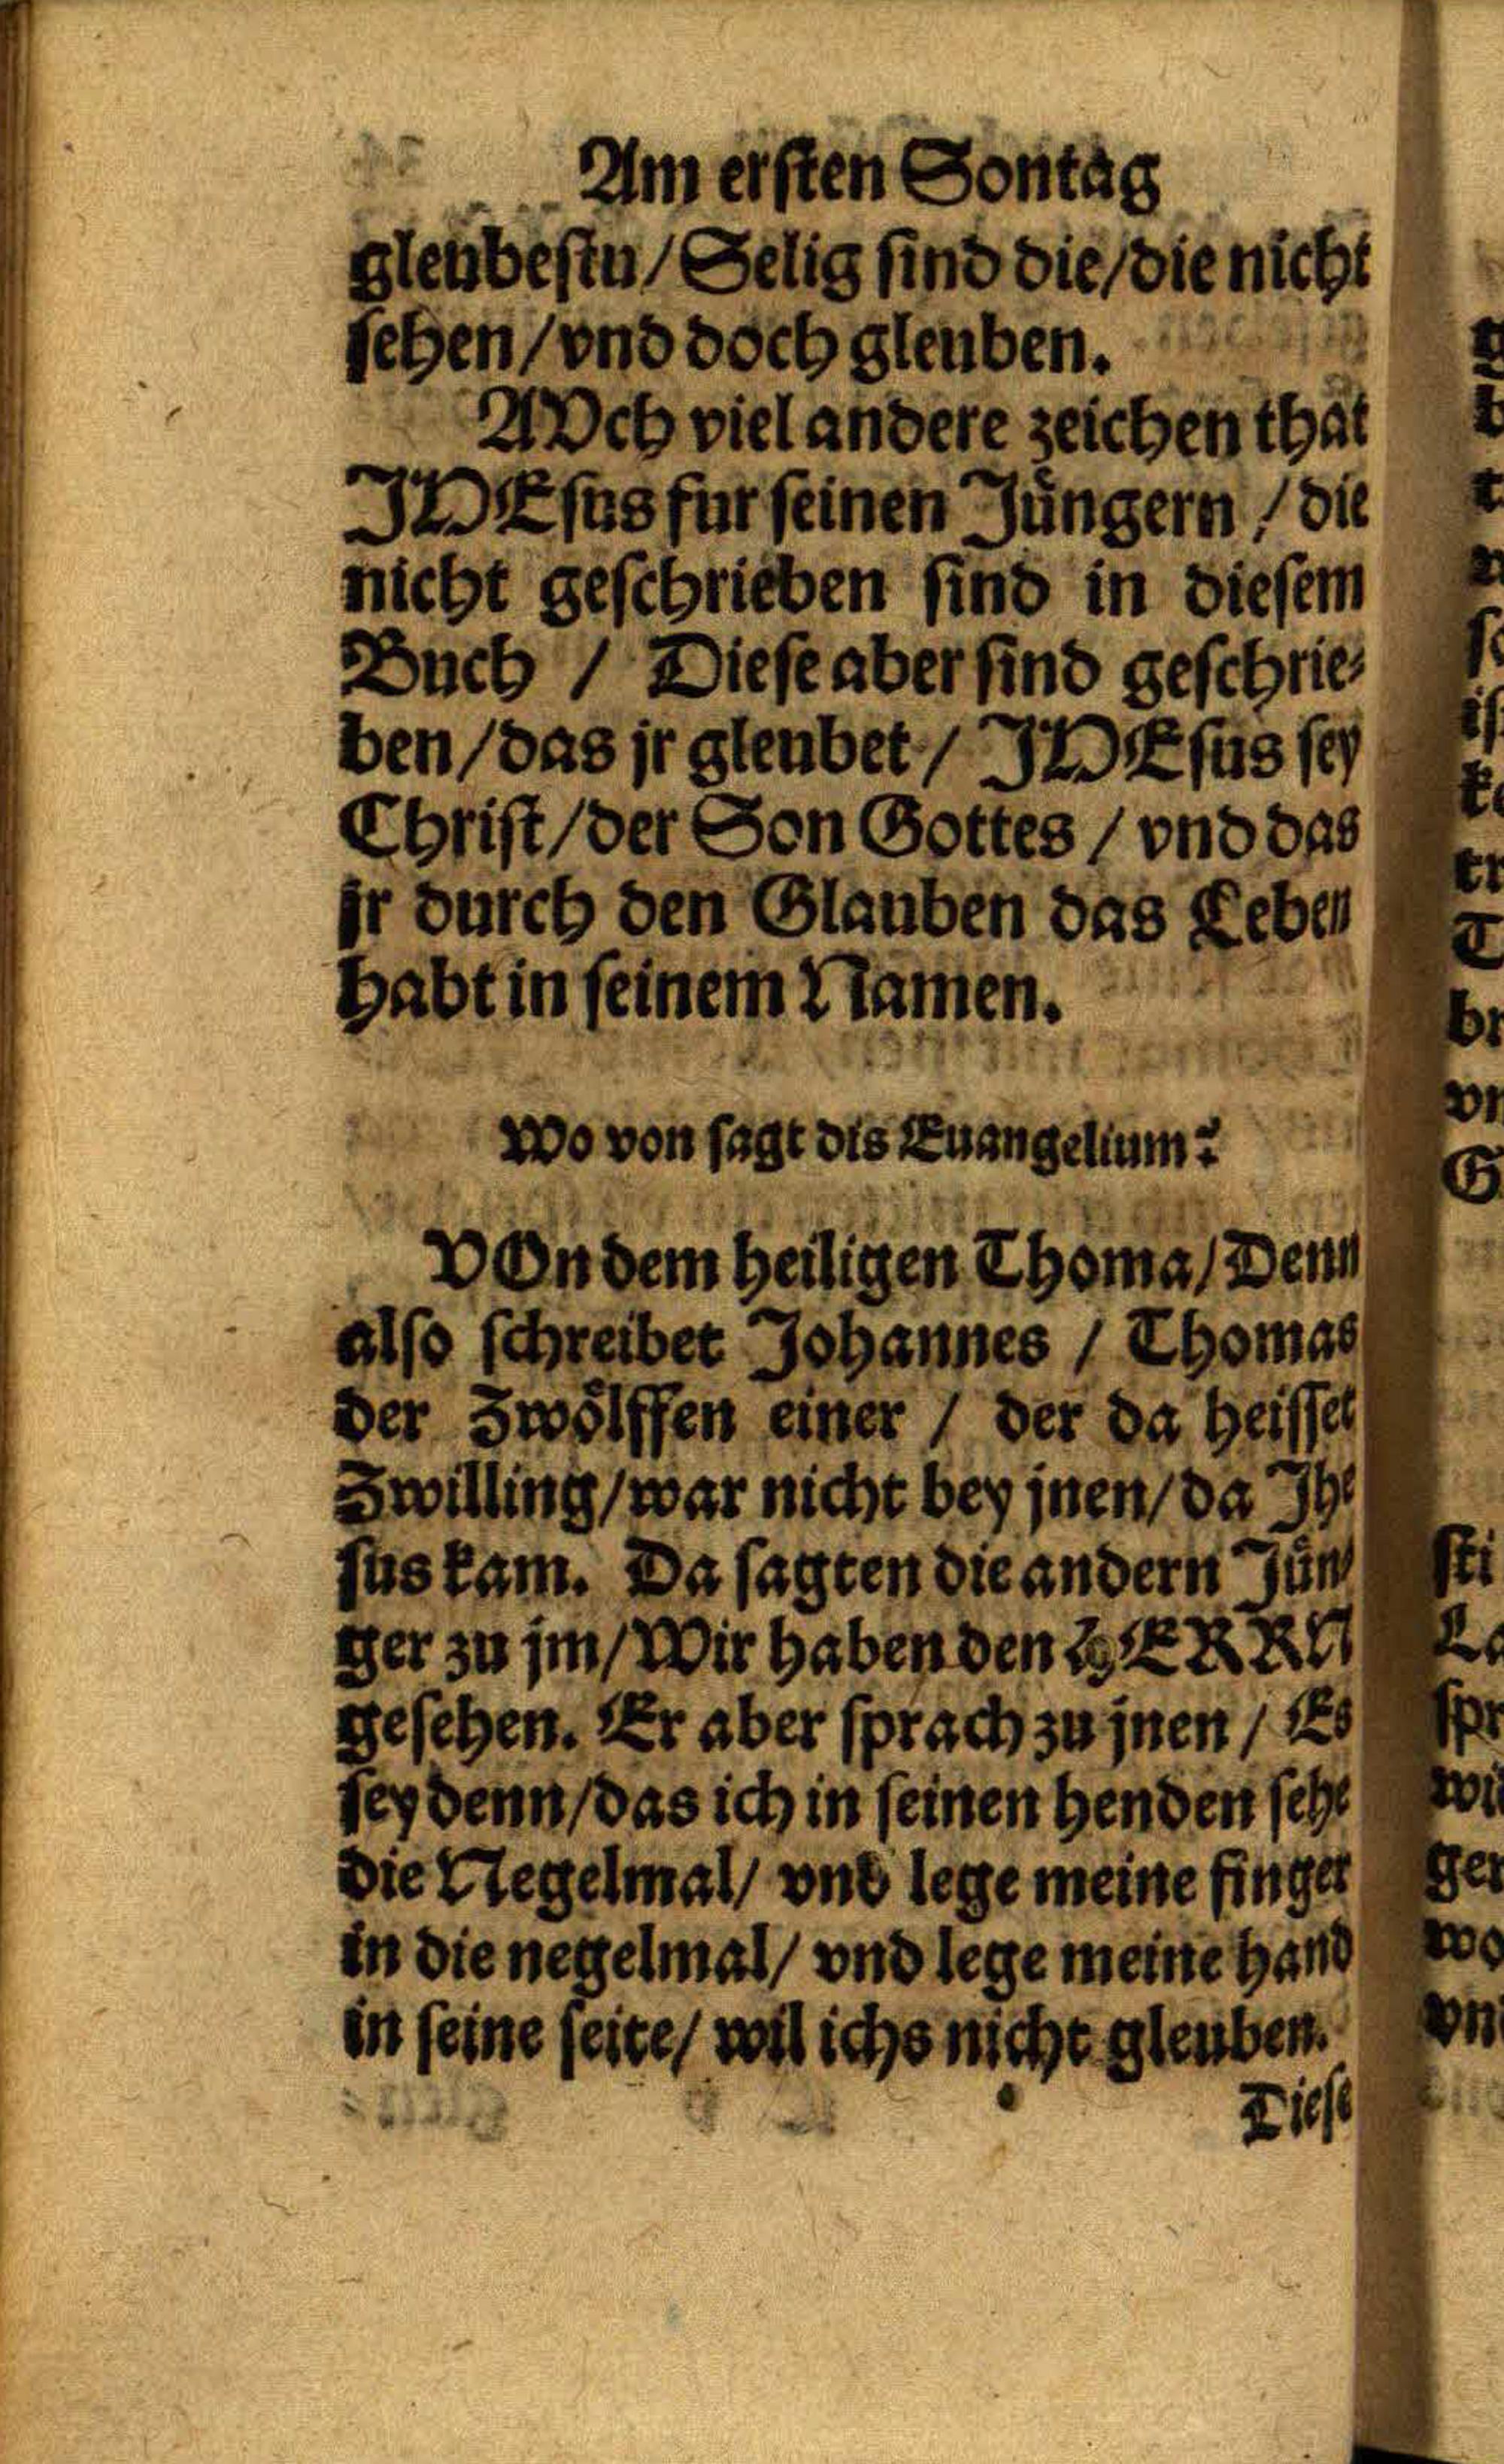 Am erſten Sontag
gleubeſtu/Selig ſind die/die nicht
ſehen/vnd doch gleuben.
AVch viel andere zeichen that
JHEſus fur ſeinen Jüngern / die
nicht geſchrieben ſind in dieſem
Buch / Dieſe aber ſind geſchrie-
ben/das jr gleubet / JHEſus ſey
Chriſt/der Son Gottes / vnd das
jr durch den Glauben das Leben
habt in ſeinem Namen.
Wo von ſagt dis Euangelium?
VOn dem heiligen Thoma/Denn
alſo ſchreibet Johannes / Thomas
der Zwölffen einer / der da heiſſet
Zwilling/war nicht bey jnen/da Jhe
ſus kam. Da ſagten die andern Jün-
ger zu jm/Wir haben den HERRN
geſehen. Er aber ſprach zu jnen / Es
ſey denn/das ich in ſeinen henden ſehe
die Negelmal/ vnd lege meine finger
in die negelmal/ vnd lege meine hand
in ſeine ſeite/ wil ichs nicht gleuben.
Dieſe